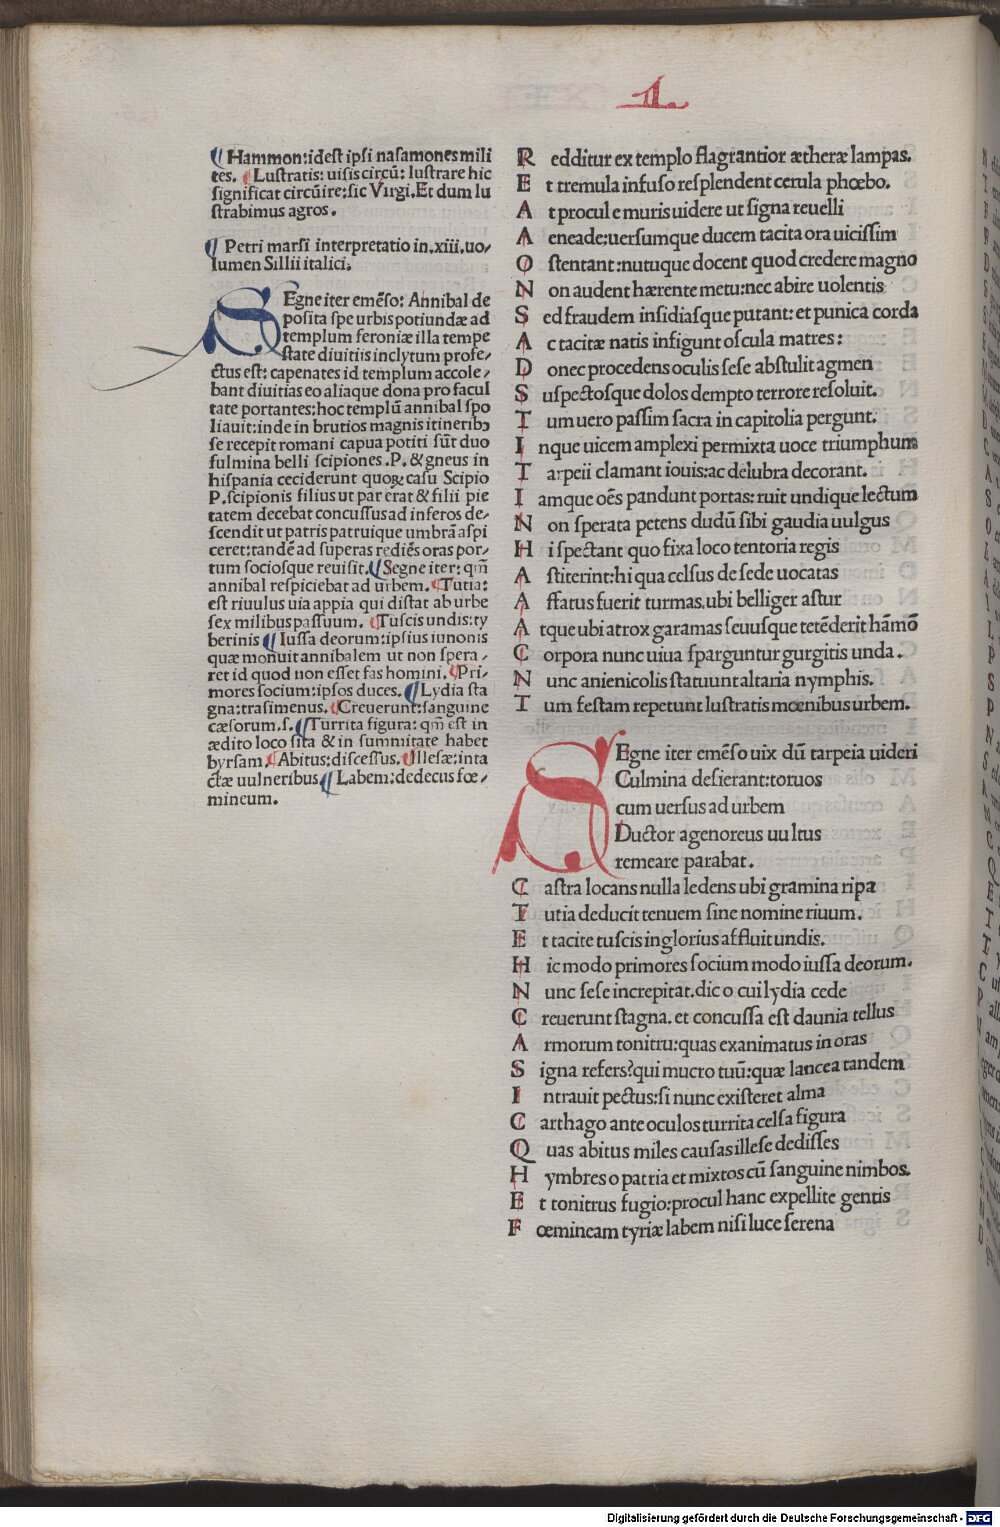 ¶ Hammon:idest ipsi nasamones mili
tes. ¶ Lustratis: uisis circū: lustrare hic
significat circūire:sic Virgi.Et dum lu
strabimus agros.
¶ Petri marsi interpretatio in.xiii.uo/
lumen Sillii italici.
SEgne iter emēso: Annibal de
posita spe urbis potiundæ ad
templum feroniæ illa tempe
state diuitiis inclytum profe/
ctus est: capenates id templum accole/
bant diuitias eo aliaque dona pro facul
tate portantes:hoc templū annibal spo
liauit:inde in brutios magnis itineribꝫ
se recepit romani capua potiti sūt duo
fulmina belli scipiones.P.&gneus in
hispania ceciderunt quoꝝ casu Scipio
P.scipionis filius ut par erat & filii pie
tatem decebat concussus ad inferos de/
scendit ut patris patruique umbrā aspi
ceret:tandē ad superas rediēs oras por/
tum sociosque reuisit.¶Segne iter: qm̄
annibal respiciebat ad urbem.¶Tutia:
est riuulus uia appia qui distat ab urbe
sex milibus passuum. ¶Tuscis undis:ty
berinis ¶Iussa deorum:ipsius iunonis
quæ monuit annibalem ut non spera/
ret id quod non esset fas homini.¶Pri/
mores socium:ipsos duces.¶Lydia sta
gna:trasimenus.¶Creuerunt:sanguine
cæsorum.s.¶Turrita figura: qm̄ est in
ædito loco sita & in summitate habet
byrsam.¶Abitus:discessus.¶Illesæ:inta
ctæ uulneribus¶Labem:dedecus fœ/
mineum.
1.
R edditur ex templo flagrantior ætheræ lampas.
E t tremula infuso resplendent cerula phœbo.
A t procul e muris uidere ut signa reuelli
A eneade:uersumque ducem tacita ora uicissim
O stentant:nutuque docent quod credere magno
N on audent hærente metu:nec abire uolentis
S ed fraudem insidiasque putant:et punica corda
A c tacitæ natis infigunt oscula matres:
D onec procedens oculis sese abstulit agmen
S uspectosque dolos dempto terrore resoluit.
T um uero passim sacra in capitolia pergunt.
I nque uicem amplexi permixta uoce triumphum
T arpeii clamant iouis:ac delubra decorant.
I amque oēs pandunt portas:ruit undique lectum
N on sperata petens dudū sibi gaudia uulgus
H i spectant quo fixa loco tentoria regis
A stiterint:hi qua celsus de sede uocatas
A ffatus fuerit turmas.ubi belliger astur
A tque ubi atrox garamas seuusque tetēderit hāmō
C orpora nunc uiua sparguntur gurgitis unda.
N unc anienicolis statuunt altaria nymphis.
T um festam repetunt lustratis mœnibus urbem.
SEgne iter emēso uix dū tarpeia uideri
Culmina desierant:toruos
cum uersus ad urbem
Ductor agenoreus uultus
remeare parabat.
C astra locans nulla ledens ubi gramina ripa
T utia deducit tenuem sine nomine riuum.
E t tacite tuscis inglorius affluit undis.
H ic modo primores socium modo iussa deorum.
N unc sese increpitat.dic o cui lydia cede
C reuerunt stagna.et concussa est daunia tellus
A rmorum tonitru:quas exanimatus in oras
S igna refers?qui mucro tuū:quæ lancea tandem
I ntrauit pectus:si nunc existeret alma
C arthago ante oculos turrita celsa figura
Q uas abitus miles causas illese dedisses
H ymbres o patria et mixtos cū sanguine nimbos.
E t tonitrus fugio:procul hanc expellite gentis
F œmineam tyriæ labem nisi luce serena
Digitalisierung gefördert durch die Deutsche Forschungsgemeinschaft - DFG